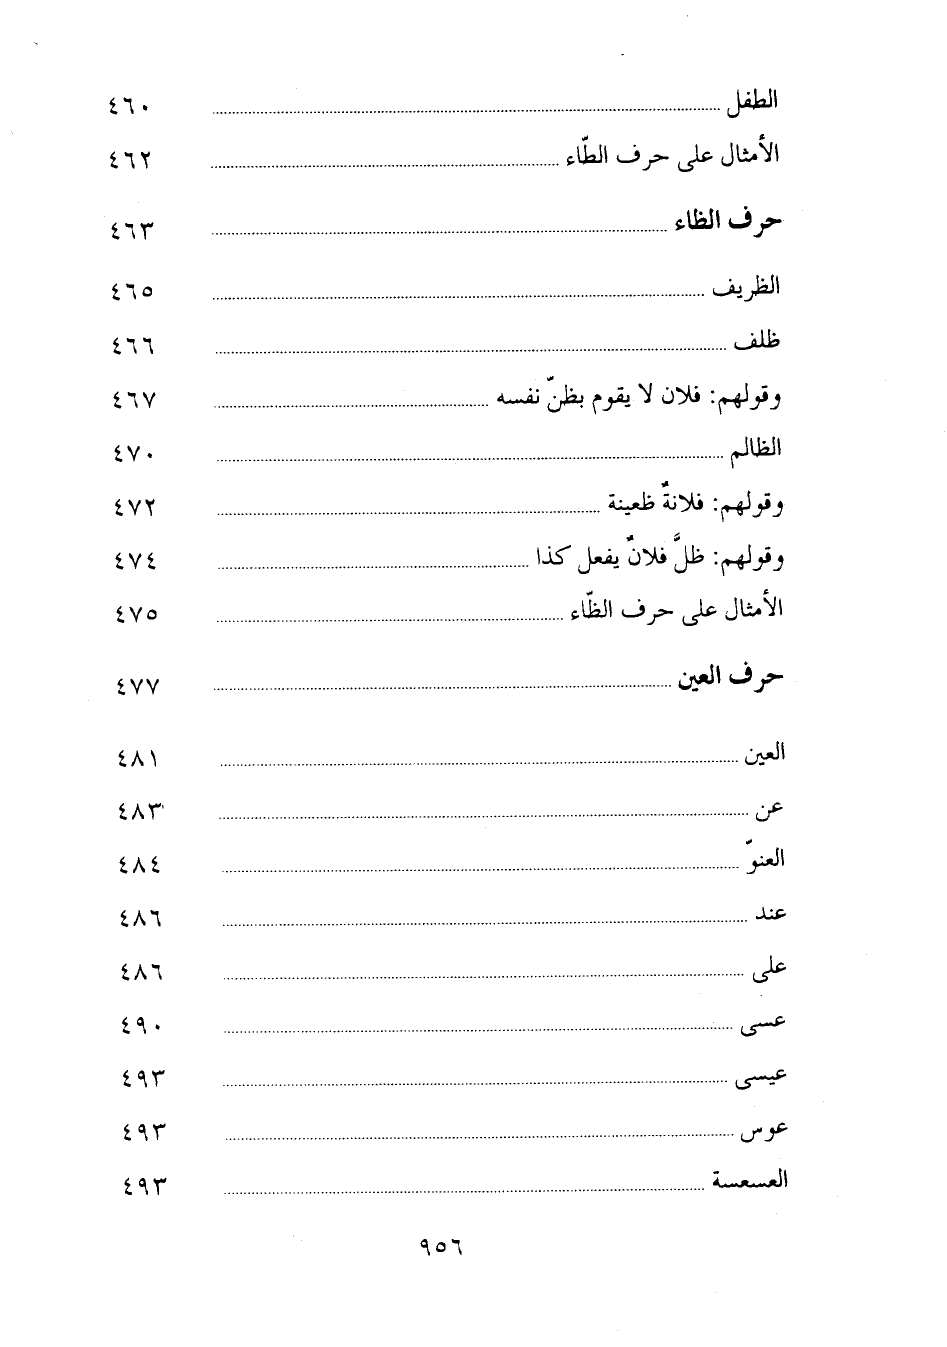 الطفل ........ ٤٦٠
الأمثال على حرف الطّاء ........ ٤٦٢
حرف الظاء ........ ٤٦٣
الظريف ........ ٤٦٥
ظلف ........ ٤٦٦
وقولهم: فلان لا يقوم بظنّ نفسه ........ ٤٦٧
الظالم ........ ٤٧٠
وقولهم: فلانةٌ ظعينة ........ ٤٧٢
وقولهم: ظلَّ فلانٌ يفعل كذا ........ ٤٧٤
الأمثال على حرف الظّاء ........ ٤٧٥
حرف العين ........ ٤٧٧
العين ........ ٤٨١
عن ........ ٤٨٣
العنوّ ........ ٤٨٤
عند ........ ٤٨٦
على ........ ٤٨٦
عسى ........ ٤٩٠
عيسى ........ ٤٩٣
عوس ........ ٤٩٣
العسعسة ........ ٤٩٣
٩٥٦